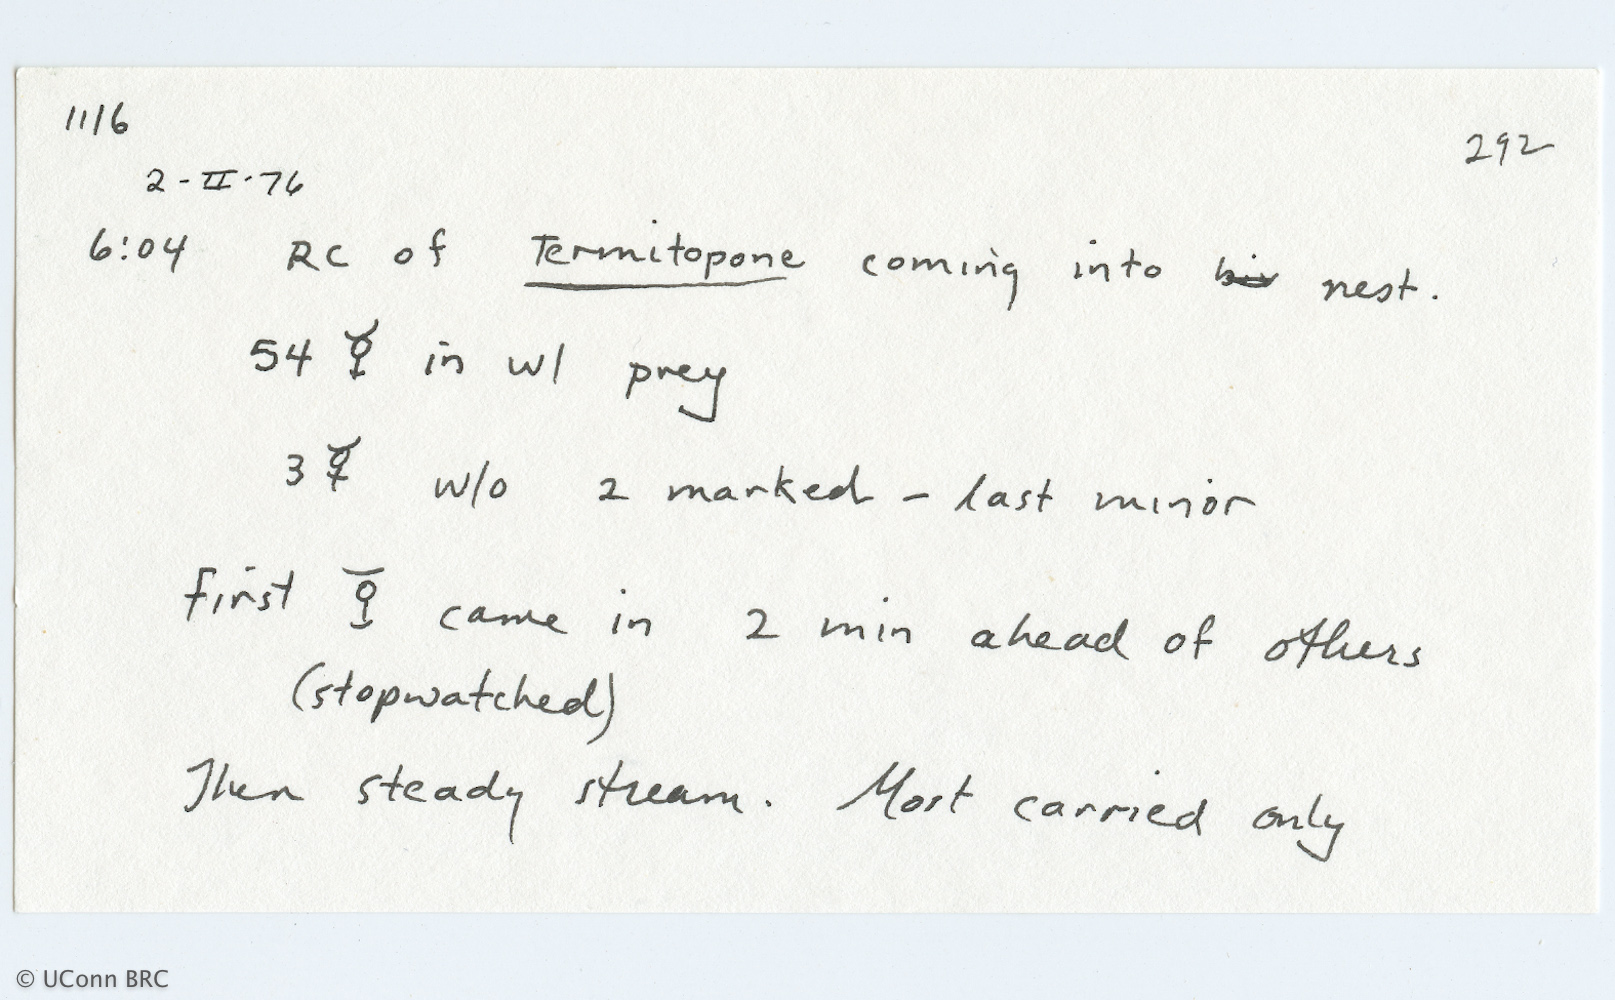 1116
292
2-II-76
6:04 RC of Termitopone coming into nest.
54 ☿ in w/ prey
3 ☿ w/o 2 marked - last minor
First ☿ came in 2 min ahead of others
(stopwatched)
Then steady stream. Most carried only
© UConn BRC